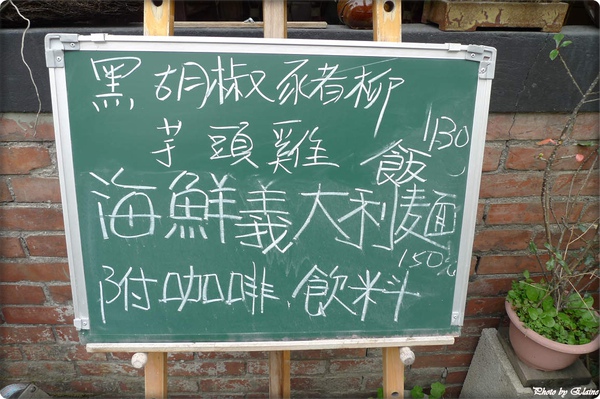 黑胡椒豬柳
芋頭雞 飯 130
海鮮義大利麵 150
附咖啡.飲料
Photo by Elaine